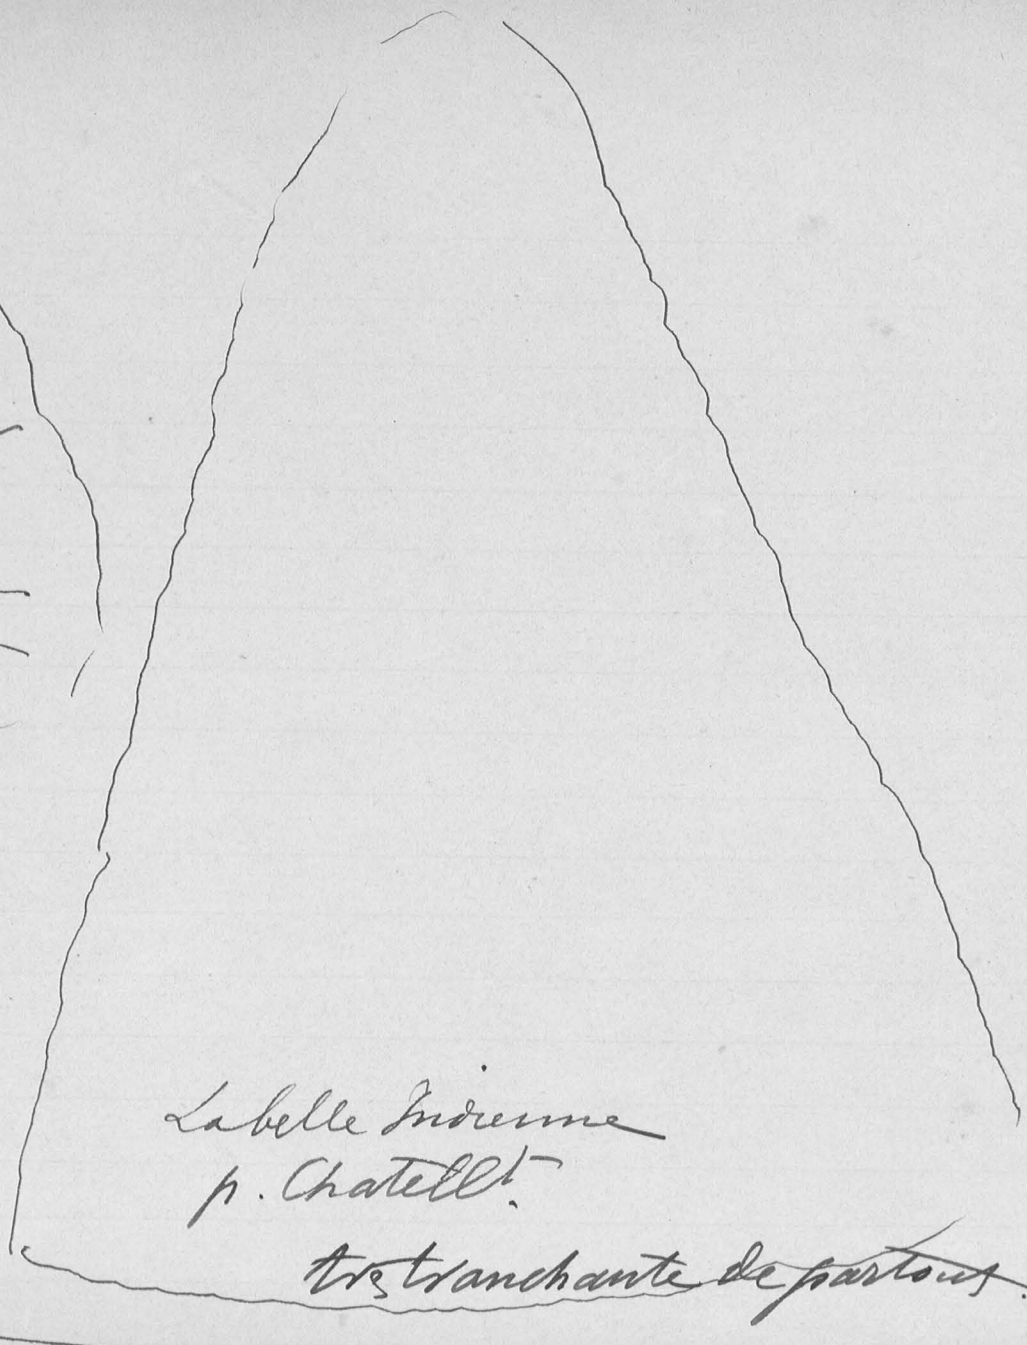 La belle Indienne
p. Chatellt.
trs tranchante de partout.